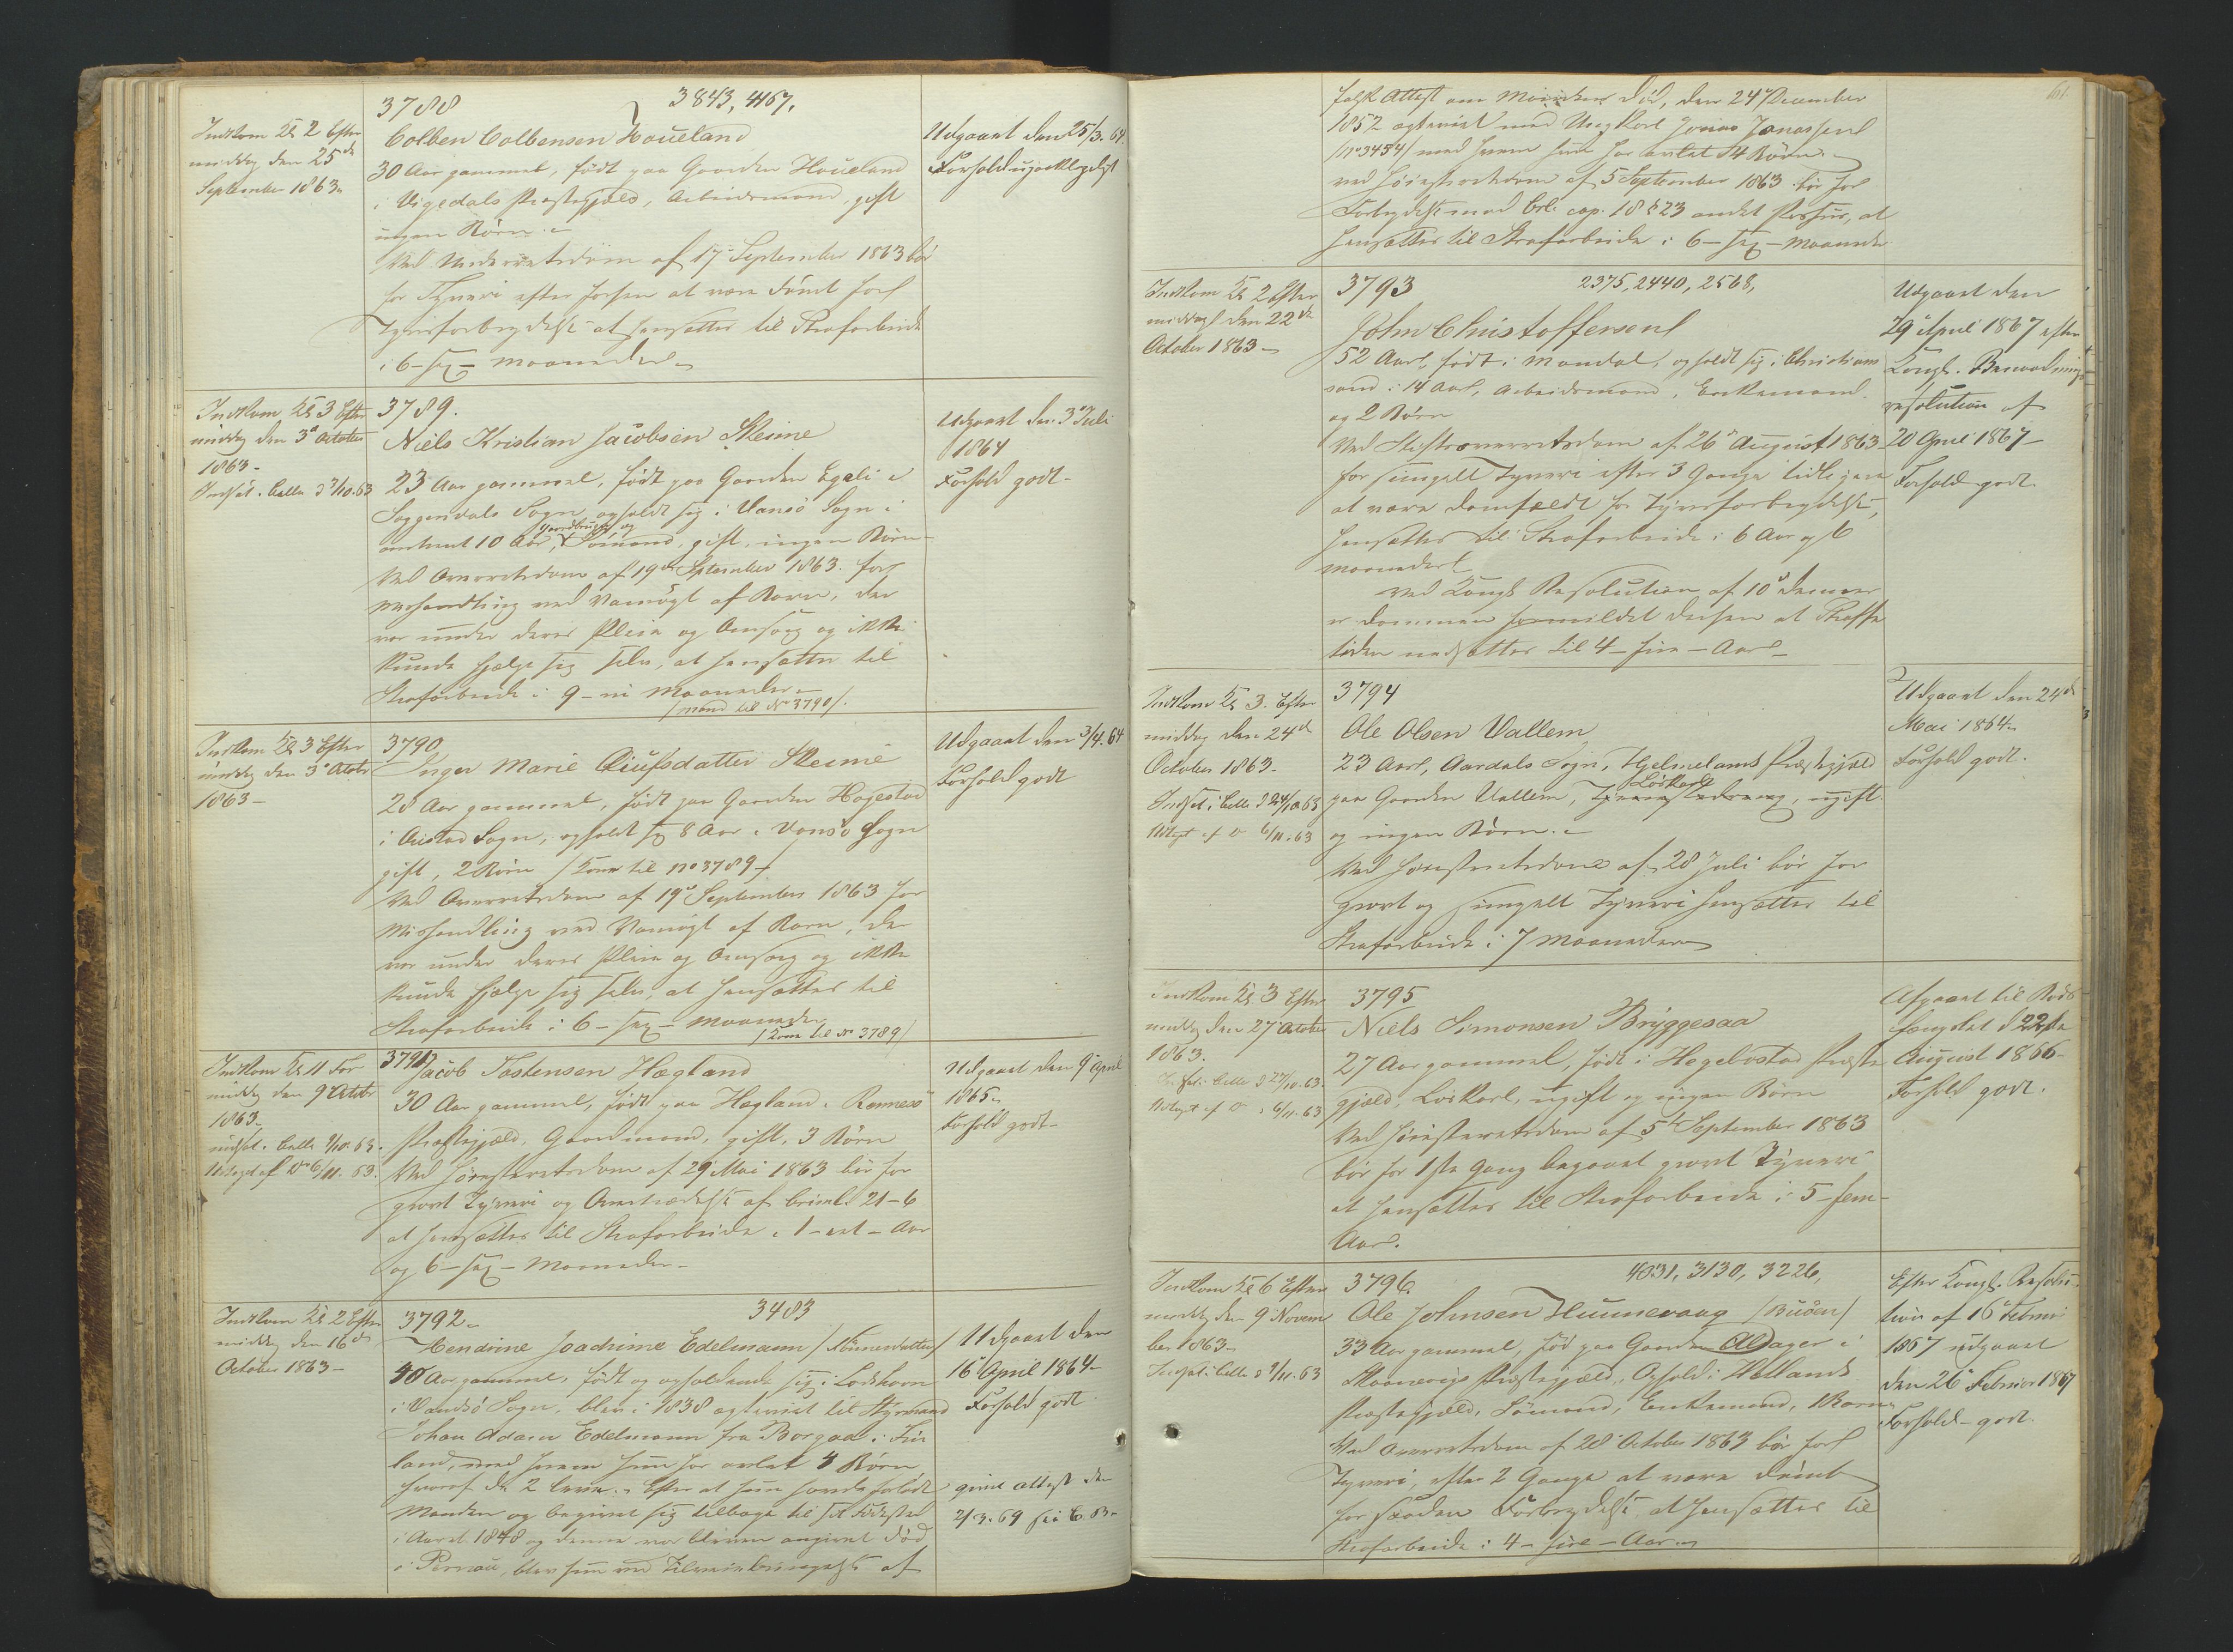 3788 3843, 4167.
Indkom Kl 2 Efter
middag den 25de
September 1863.
Colben Colbensen Houeland
30 Aar gammel, født paa Gaarden Houeland
i Vigedals Præstegjæld, Arbeidsmand, gift
ingen Børn.
Ved Underretsdom af 17de September 1863 bør
for Tyveri efter forhen at være dømt for
Tyvsforbrydelse at hensættes til Strafarbeide
i 6 - sex - Maaneder
Udgaaet den 25/3. 64.
Forhold uprolkageligt
Indkom Kl 3 Efter
middag den 3de October
1863.
Indsat i Celle d 3/10.63
3789.
Niels Kristian Jacobsen Skeime
23 Aar gammel, født paa Gaarden Egeli i
Soggendals Sogn, opholdt sig i Vansø Sogn i
omtrent 10 Aar, Gaardbruger og Sømand, gift, ingen Børn
Ved Overretsdom af 19de September 1863 for
Mishandling ved Vanrøgt af Børn, der
var under deres Pleie og Omsorg og ikke
kunde hjælpe sig selv, at hensættes til
Strafarbeide i 9 - ni Maaneder.
/Mand til No 3790/.
Udgaaet den 3de Juli
1864
Forhold godt
Indkom Kl 3 Efter
middag den 3de Octobr
1863
3790
Inger Marie Siufsdatter Skeime
28 Aar gammel, født paa Gaarden Hogestad
i Austad Sogn, opholdt sig 8 Aar i Vansø Sogn
gift, 2 Børn /Kone til No 3789/
Ved Overretsdom af 19de September 1863 for
Mishandling ved Vanrøgt af Børn, der
var under deres Pleie og Omsorg og ikke
kunde hjælpe sig selv, at hensættes til
Strafarbeide i 6 - sex - Maaneder
/Kone til No 3789/
Udgaaet den 3/4. 64
Forhold godt
Indkom Kl 11 For
middag den 9de Octbr
1863.
indsat i Celle 9/10.63.
Udtagt af Do 6/11. 63.
3791 Jacob Tostensen Hægland
30 Aar gammel, født paa Hægland i Rennesø
Præstegjæld, Gaardmand, gift, 3 Børn
Ved Høiesteretsdom af 29de Mai 1863 bør for
grovt Tyveri og Overtrædelse af Criml. 21-6
at hensættes til Strafarbeide i 1 - eet - Aar
og 6 - sex - Maaneder
Udgaaet den 9de April
1865.
Forhold godt
Indkom Kl 2 Efter
middag den 16de
October 1863
3792 3483
Hendrine Joachime Edelmann /Tønnesdatter/
48 Aar gammel, født og opholdende sig i Loshavn
i Vandsø Sogn, blev i 1838 ægteviet til Styrmand
Johan Adam Edelmann fra Borgaa i Fin
land, med hvem hun har avlet 4 Børn
hvoraf de 2 leve. Efter at hun havde forladt
Manden og begivet sig tilbage til sit Fødested
i Aaret 1848 og denne var bleven angivet død
i Pernau, blev hun ved Tilveiebringelse af
Udgaaet den
16de April 1864
Forhold godt
givet Attest den
2/3. 69
61.
falsk Attest om Mandens Død, den 24de December
1852 ægteviet med Ungkarl Jonas Janassen
/No 3454/ med hvem hun har avlet 4 Børn.
ved Høiesteretsdom af 5 September 1863 bør for
Forbrydelse mod Crl. cap. 18 § 23 andet Passus, at
hensættes til Strafarbeide i 6 - sex - Maaneder
Indkom Kl 2 Efter
middag den 22de
October 1863
3793 2375, 2440, 2568,
John Christoffersen
52 Aar, født i Mandal, opholdt sig i Christian
sand i 14 Aar, Arbeidsmand, Enkemand
og 2 Børn
Ved Stiftsoverretsdom af 26de August 1863
for simpelt Tyveri efter 3 Gange tidligere
at være domfældt for Tyvsforbrydelse,
hensættes til Strafarbeide i 6 Aar og 6
Maaneder
ved Kongl. Resolution af 10de
er Dommen formildet derhen at Straffe
tiden nedsættes til 4 - fire - Aar
Udgaaet den
29de April 1867 efter
Kongl. Benaadnings
resolution af
20 April 1867
Forhold godt.
Indkom Kl 3. Efter
middag den 24de
October 1863.
Indsat i Celle d 24/10 63
Udtagt af Do 6/11. 63
3794
Ole Olsen Vallem
23 Aar, Aardals Sogn, Hjelmelands Præstegjæld
paa Gaarden Vallem, Løskarl, ugift
og ingen Børn.
Ved Høiesteretsdom af 28 Juli bør for
grovt og simpelt Tyveri hensættes til
Strafarbeide i 7 Maaneder
Udgaaet den 24de
Mai 1864.
Forhold godt.
Indkom Kl 3 Efter
middag den 27 October
1863.
Indsat i Celle d 27/10.63.
Udtagt af Do 6/11.63
3795
Niels Simonsen Bryggesaa
27 Aar gammel, født i Hegebostad Præste
gjæld, Løskarl, ugift og ingen Børn
Ved Høiesteretsdom af 5te September 1863
bør for 1ste Gang begaaet grovt Tyveri
at hensættes til Strafarbeide i 5 - fem -
Aar.
Afgaaet til Bods
fængslet d 22de
August 1866
Forhold godt.
Indkom Kl 6 Efter
middag den 9de Novem
ber 1863.
Indsat i Celle d 9/11.63
3796. 4031, 3130, 3226,
Ole Johnsen Hunnevaag /Buøen/
33 Aar gammel, fød paa Gaarden Aldager i
Skaanevigs Præstegjæld, Ophold i Hetlands
Præstegjæld, Sømand, Enkemand, 1 Barn
Ved Overretsdom af 28de October 1863 bør for
Tyveri, efter 2 Gange at være dømt
for saadan Forbrydelse at hensættes til
Strafarbeide i 4 - fire - Aar.
Efter Kongl. Resolu
tion af 16de Februar
1867 udgaaet
den 26de Februar 1867
Forhold godt.